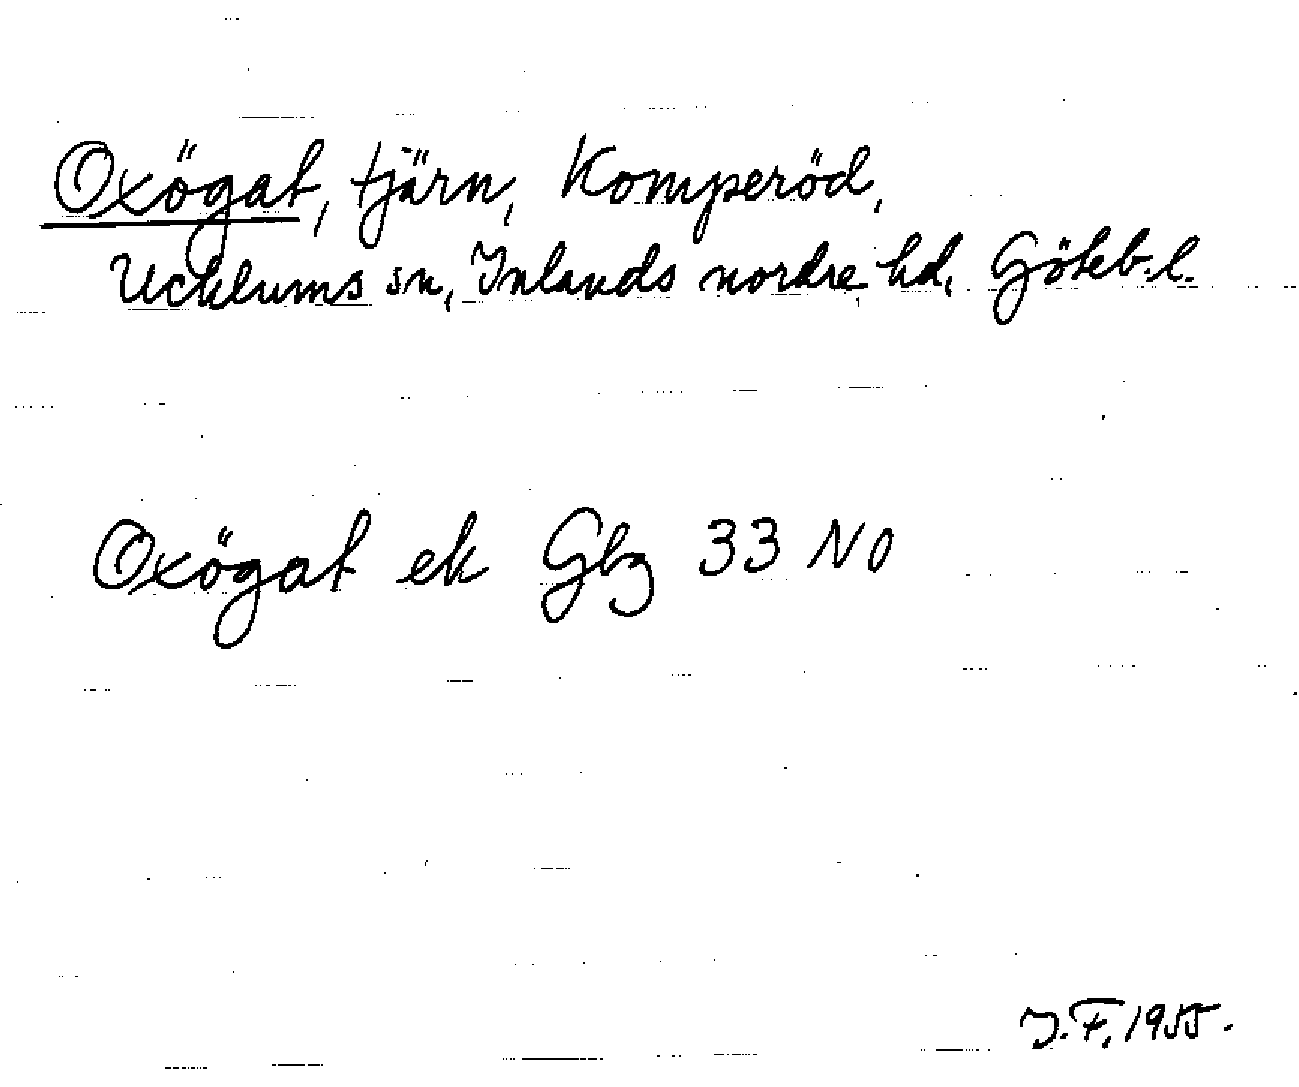 Oxögat, tjärn, Komperöd,
Ucklums sn, Inlands nordre hd, Göteb. l.
Oxögat ek Gbg 33 NO
J.F. 1955.